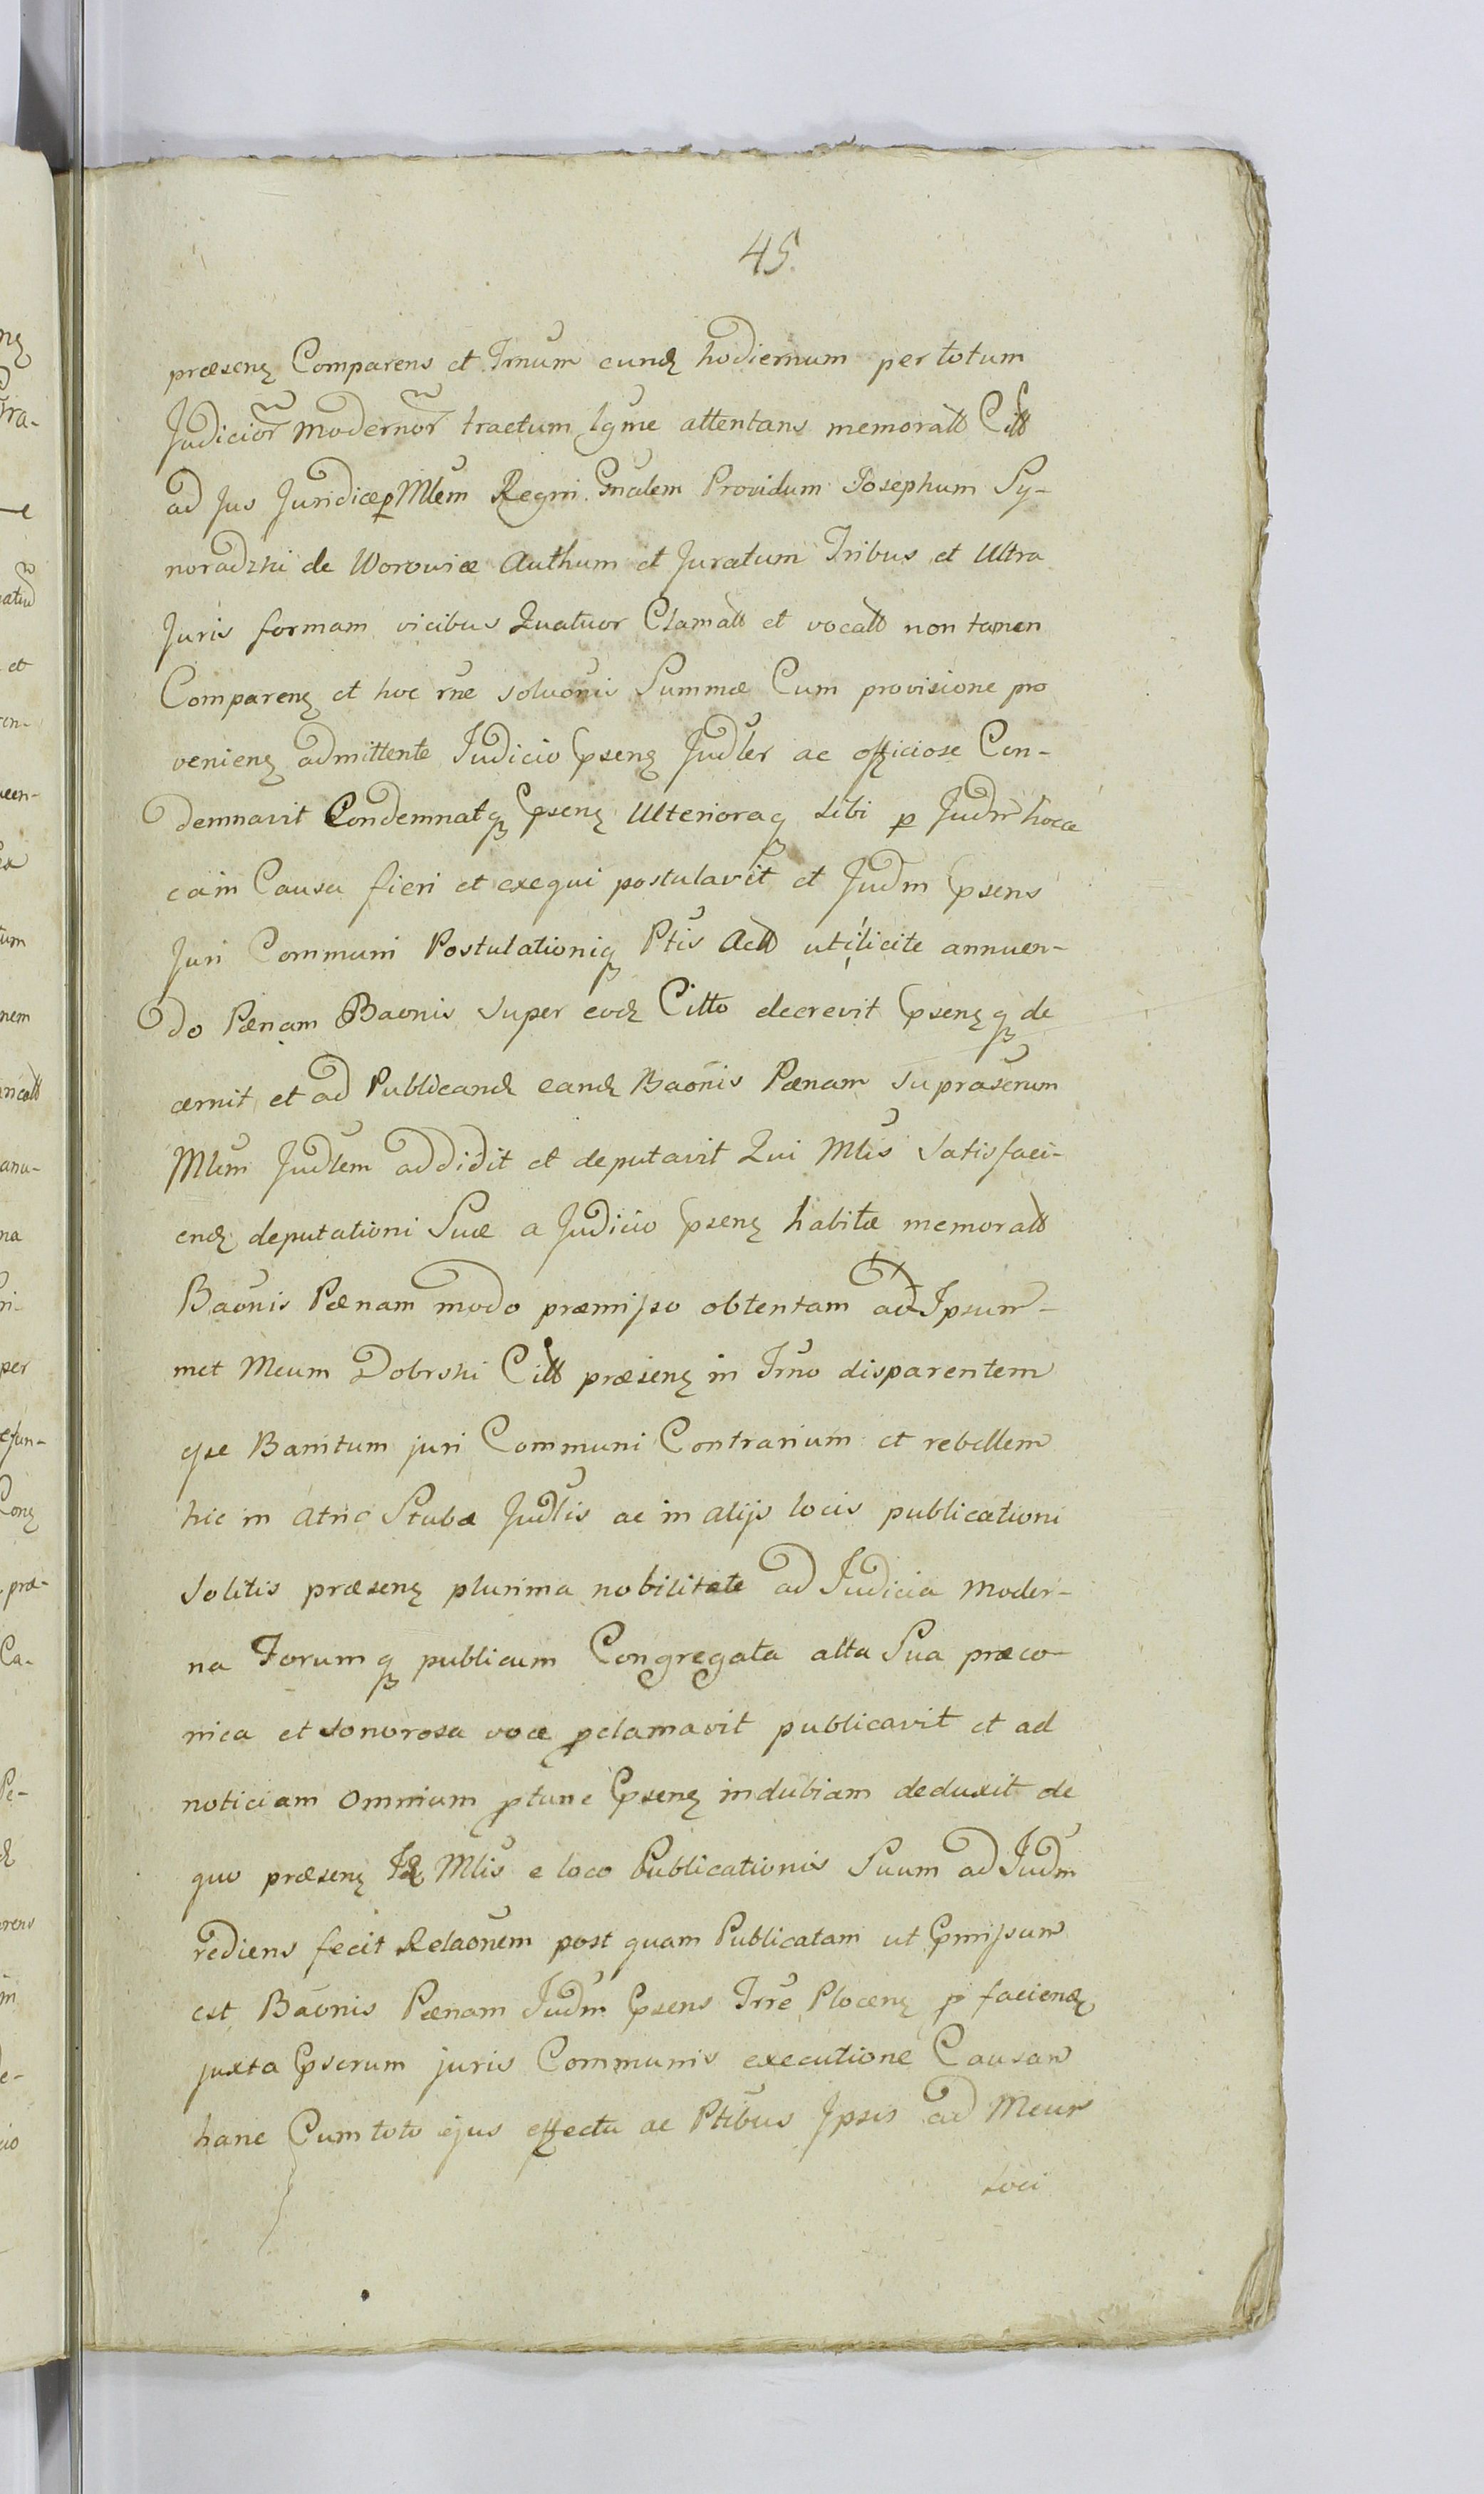 45.
præsenꝫ Comparens et Trnum eundꝫ hodiernum per totum
Judicior modernor tractum lgme attentans memoratt Citt
ad Jus Juridice p Mlem Regni Gnalem Providum Josephum Sy-
noradzki de Worowice Authum et Juratum Tribus et Ultra
Juris formam vicibus Quatuor Clamatt et vocatt non tamen
Comparenꝫ et hoc rne solvonis Summæ Cum provisione pro
venienꝫ admittente Judicio psenꝫ Judler ac officiose Con-
demnavit Condemnatqꝫ psenꝫ Ulterioraqꝫ sibi p Judm hocce
ea in Causa fieri et exequi postulavit et Judm psens
Juri Communi Postulationiqꝫ Ptis Actt uti licite annuen-
do Pænam Baonis super eodꝫ Citto decrevit psenꝫqꝫ de
cernit et ad Publicandꝫ eandꝫ Baonis Pænam suprascrum
Mlem Judlem addidit et deputavit Qui Mlis Satisfaci-
endꝫ deputationi Suæ a Judicio psenꝫ habitæ memoratt
Baonis Pænam modo præmisso obtentam ad Ipsum-
met Meum Dobrski Citt præsenꝫ in Trno disparentem
qse Banitum juri Communi Contrarium et rebellem
hic in atrio Stubæ Judlis ac in alijs locis publicationi
Solitis præsenꝫ plurima nobilitate ad Judicia moder-
na Forumqꝫ publicum Congregata alta Sua præco-
nica et sonorosa voce pclamavit publicavit et ad
noticiam omnium ptunc psenꝫ indubiam deduxit de
quo præsenꝫ Idꝫ Mlis e loco Publicationis Suum ad Judm
rediens fecit Relaonem post quam Publicatam ut pmissum
est Baonis Pænam Judm psens Trre Plocenꝫ p faciendꝫ
juxta pscrum juris Communis executione Causam
hanc Cum toto ejus effectu ac Ptibus Ipsis ad Meum
Loci